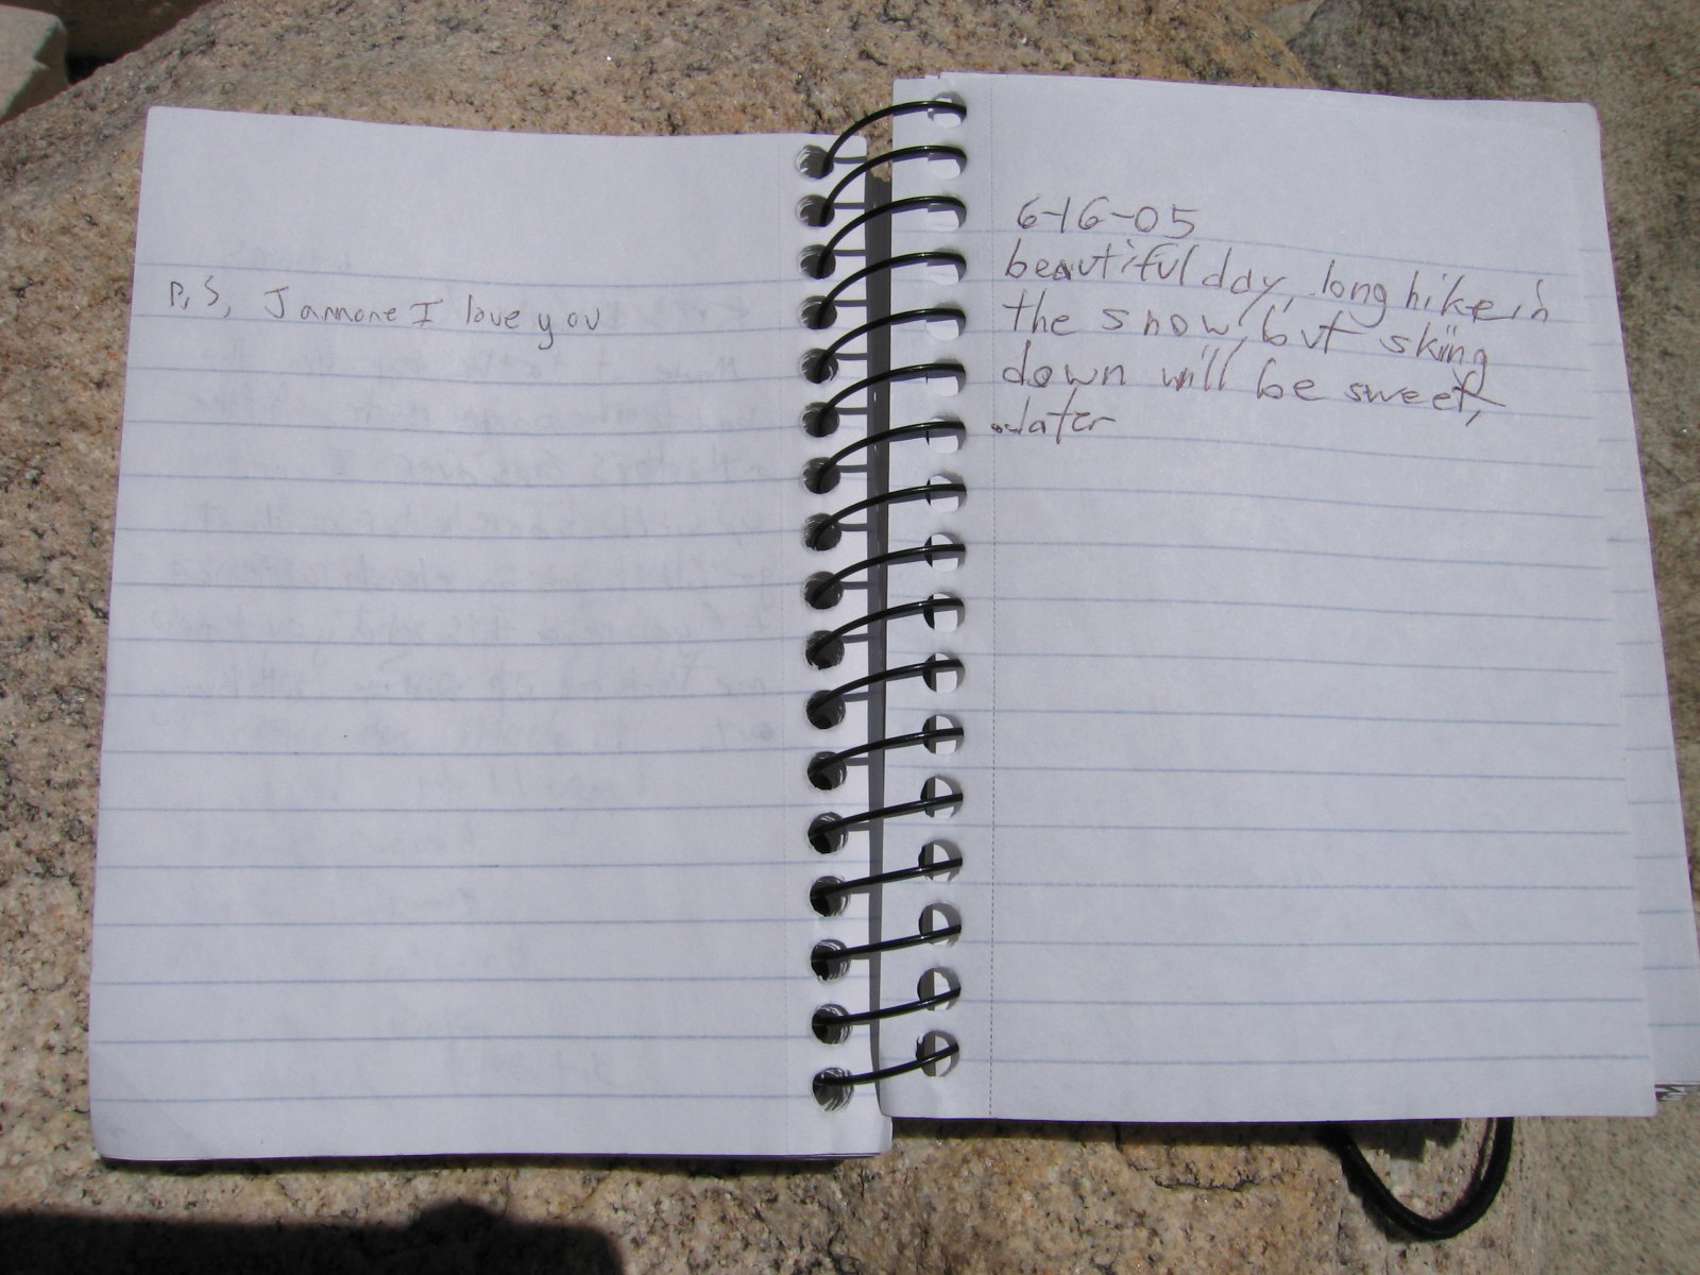 P.S, Jannone I love you
6-16-05
beautiful day, long hike in
the snow, but skiing
down will be sweet,
later